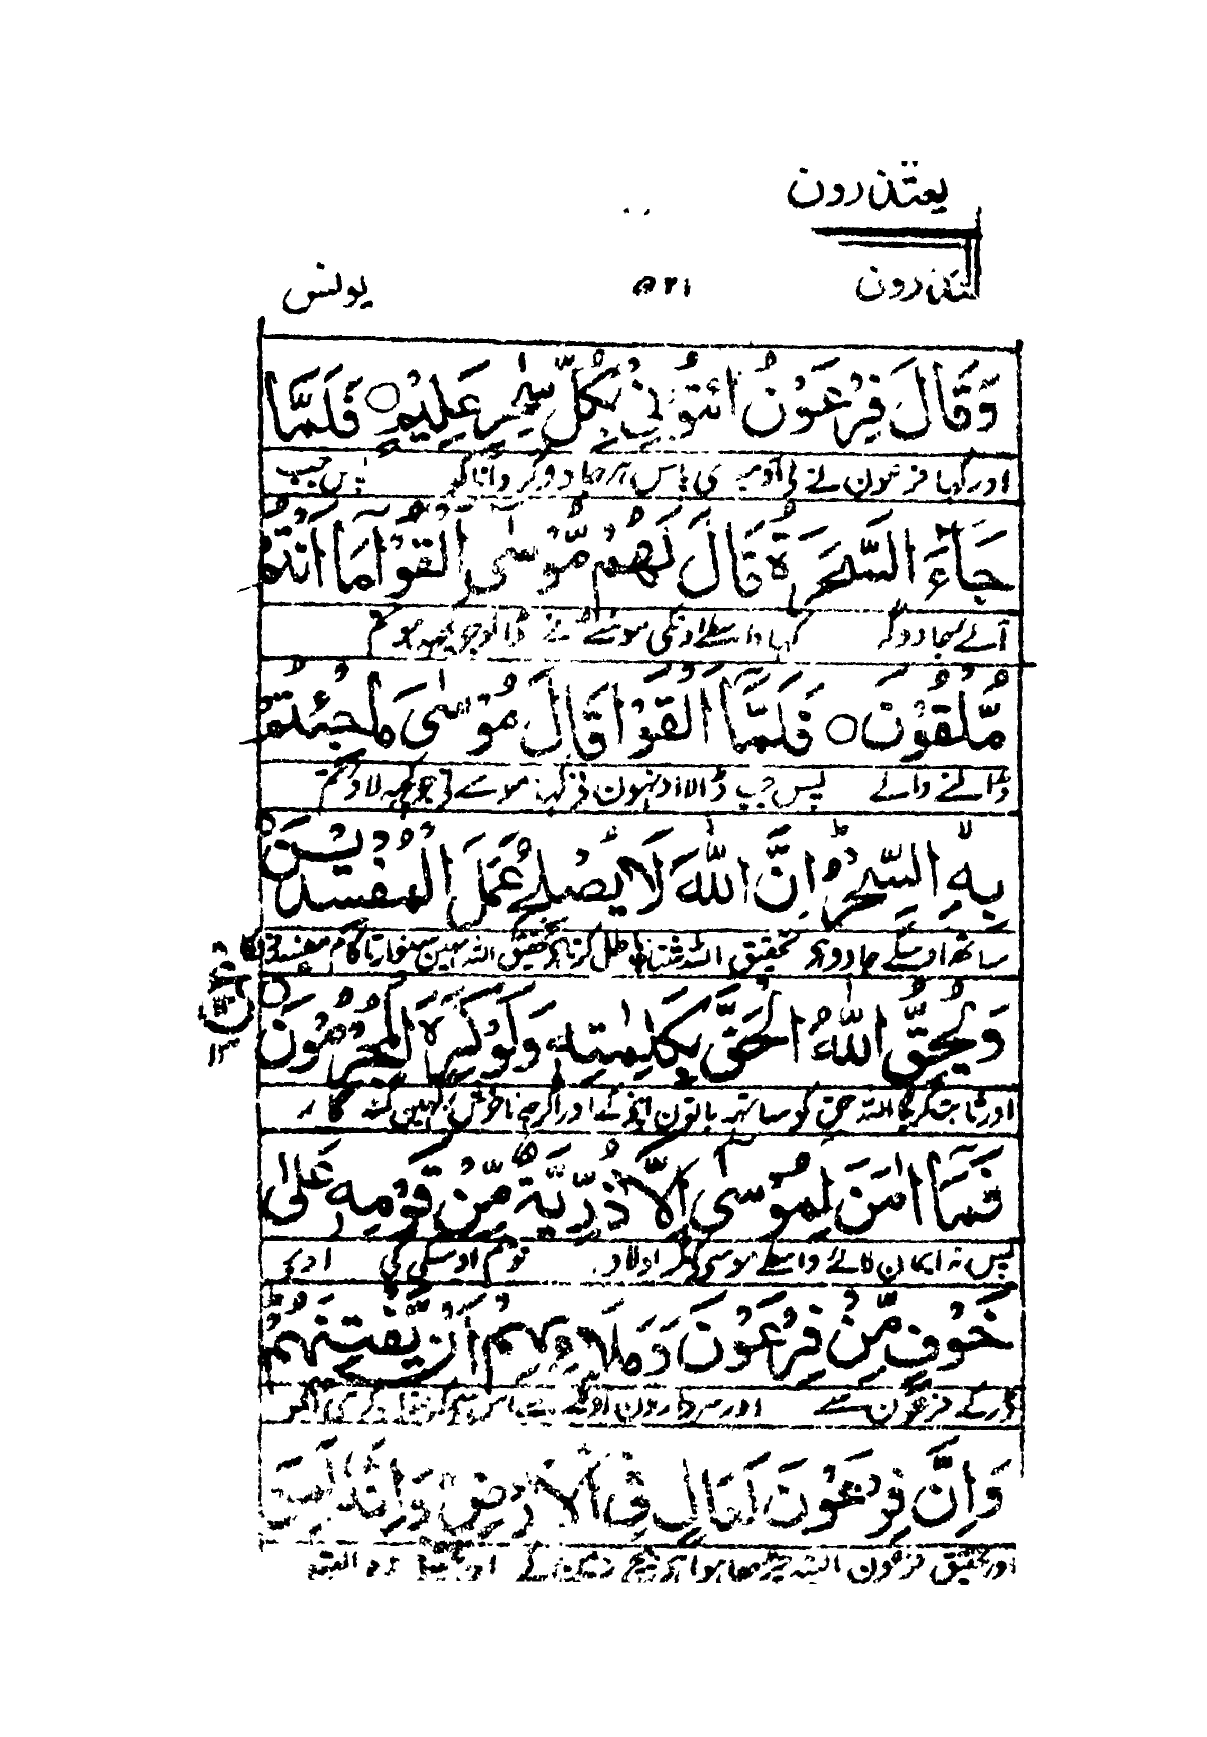 یعتذرون
یعتذرون ۵۲۱ یونس
وَقَالَ فِرْعَوْنُ ائْتُوْنِیْ بِكُلِّ سٰحِرٍ عَلِیْمٍ ○ فَلَمَّا
اور کہا فرعون نے لی آؤ میری پاس ہر جادوگر دانا کو پس جب
جَآءَ السَّحَرَةُ قَالَ لَهُمْ مُّوْسٰۤی اَلْقُوْا مَاۤ اَنْتُمْ
آئے جادوگر کہا واسطے اونکی موسیٰ نے ڈالو جو کچھ ہو تم
مُّلْقُوْنَ ○ فَلَمَّاۤ اَلْقَوْا قَالَ مُوْسٰی مَا جِئْتُمْ
ڈالنے والے پس جب ڈالا اونہون نے کہا موسے نی جو کچھ لائے تم
بِهِ السِّحْرُ اِنَّ اللّٰهَ سَیُبْطِلُهٗ اِنَّ اللّٰهَ لَا یُصْلِحُ عَمَلَ الْمُفْسِدِیْنَ ○
ساتھ اوسکے جادو ہی تحقیق اللہ شتاب باطل کریگا تحقیق اللہ نہین سنوارتا کام مفسدونکا
وَیُحِقُّ اللّٰهُ الْحَقَّ بِكَلِمٰتِهٖ وَلَوْ كَرِهَ الْمُجْرِمُوْنَ ○
اور ثابت کریگا اللہ حق کو ساتھ باتون اپنی کے اور اگرچہ ناخوش رکہین گنہگار
ع ۱۳
فَمَاۤ اٰمَنَ لِمُوْسٰۤی اِلَّا ذُرِّیَّةٌ مِّنْ قَوْمِهٖ عَلٰی
پس نہ ایمان لائے واسطے موسی کی مگر اولاد قوم اوسکی کی اوپر
خَوْفٍ مِّنْ فِرْعَوْنَ وَمَلَاۡئِهِمْ اَنْ یَّفْتِنَهُمْ
ڈر کے فرعون سے اور سردارون اونکے سے
وَاِنَّ فِرْعَوْنَ لَعَالٍ فِی الْاَرْضِ وَاِنَّهٗ لَمِنَ
اور تحقیق فرعون البتہ چڑھا ہوا ہی بیچ زمین کے اور تحقیق وہ البتہ